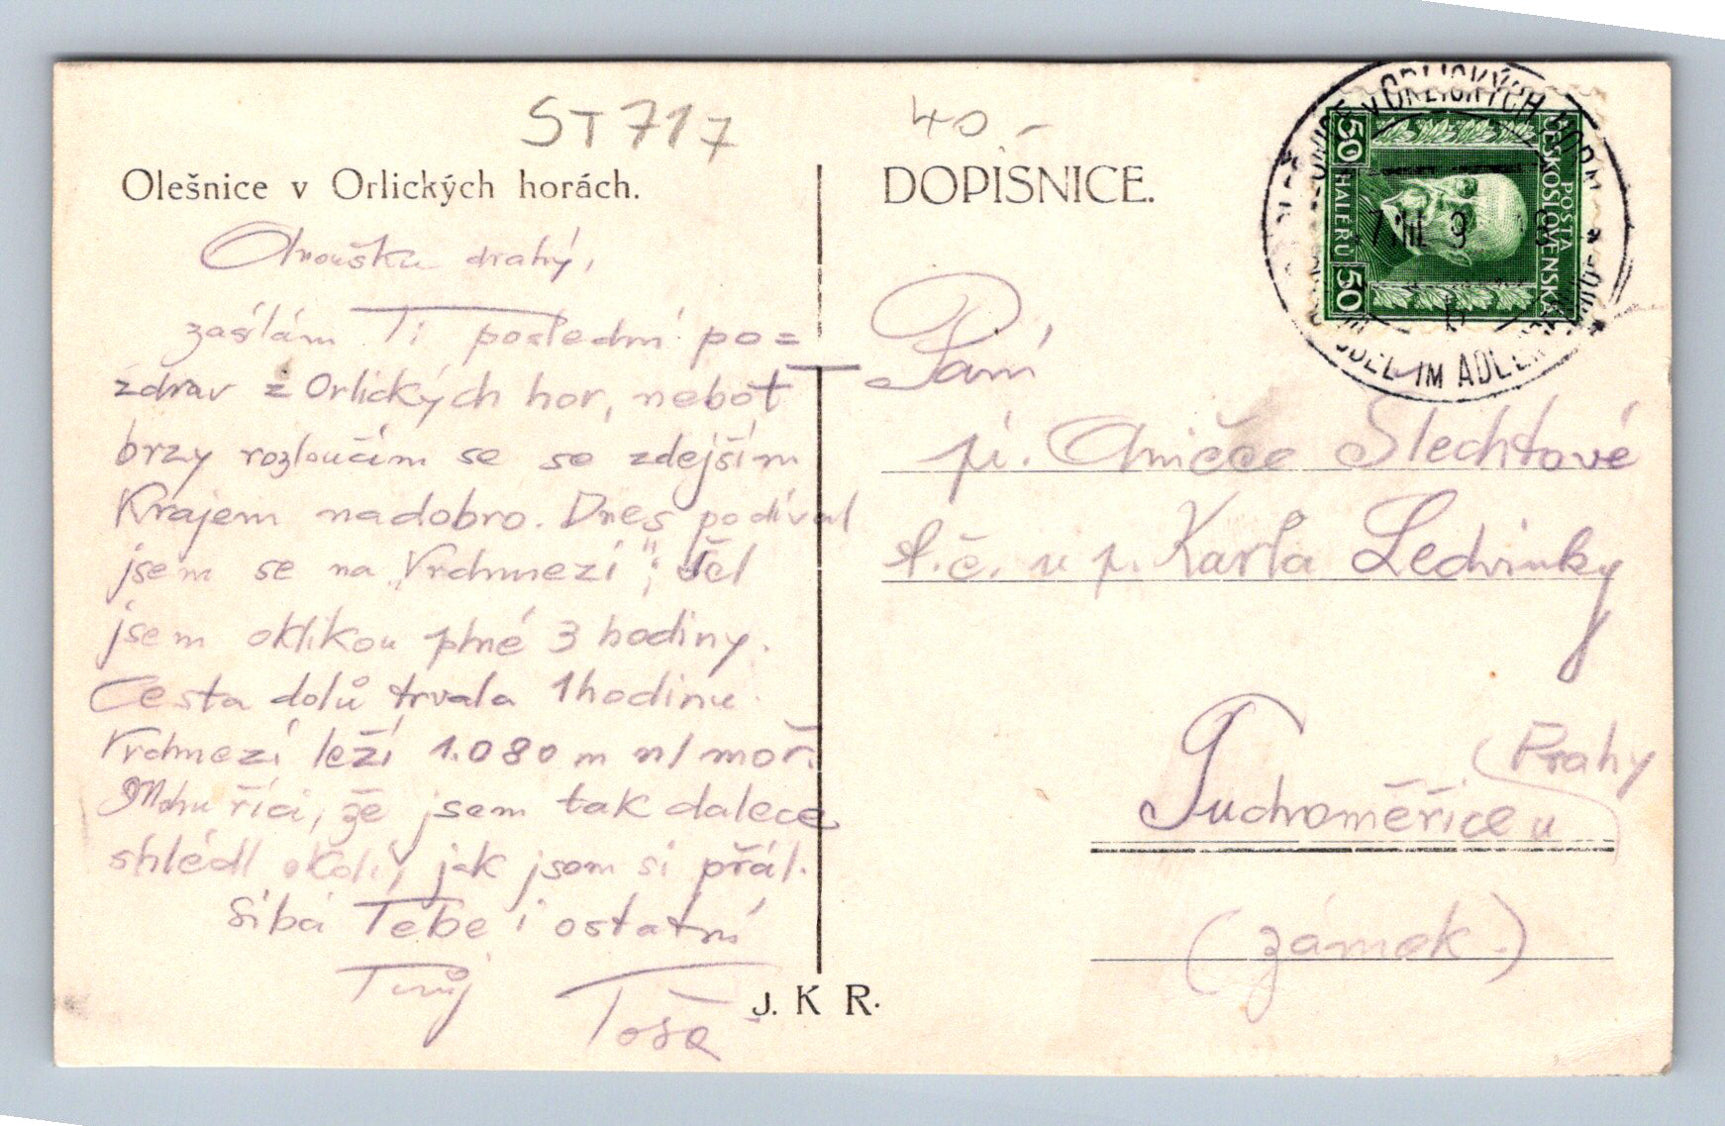 ST 717
40.-
Olešnice v Orlických horách.
DOPISNICE.
Anoušku drahý,
zasílám Ti poslední po=
zdrav z Orlických hor, neboť
brzy rozloučím se se zdejším
Krajem nadobro. Dnes podíval
jsem se na „Vrchmezí"; šel
jsem oklikou plné 3 hodiny.
Cesta dolů trvala 1 hodinu.
Vrchmezí leží 1.080 m n/ moř.
Mohu říci, že jsem tak dalece
shlédl okolí, jak jsem si přál.
líbá Tebe i ostatní
Tvůj Toša
J. K R.
POŠTA
ČESKOSLOVENSKÁ
50 HALÉŘŮ 50
V ORLICKÝCH HOR
IM ADLER
7.III. 9
Paní
pí. Aničce Šlechtové
t.č. u p. Karla Ledvinky
Tuchoměřice u
Prahy
(zámek.)